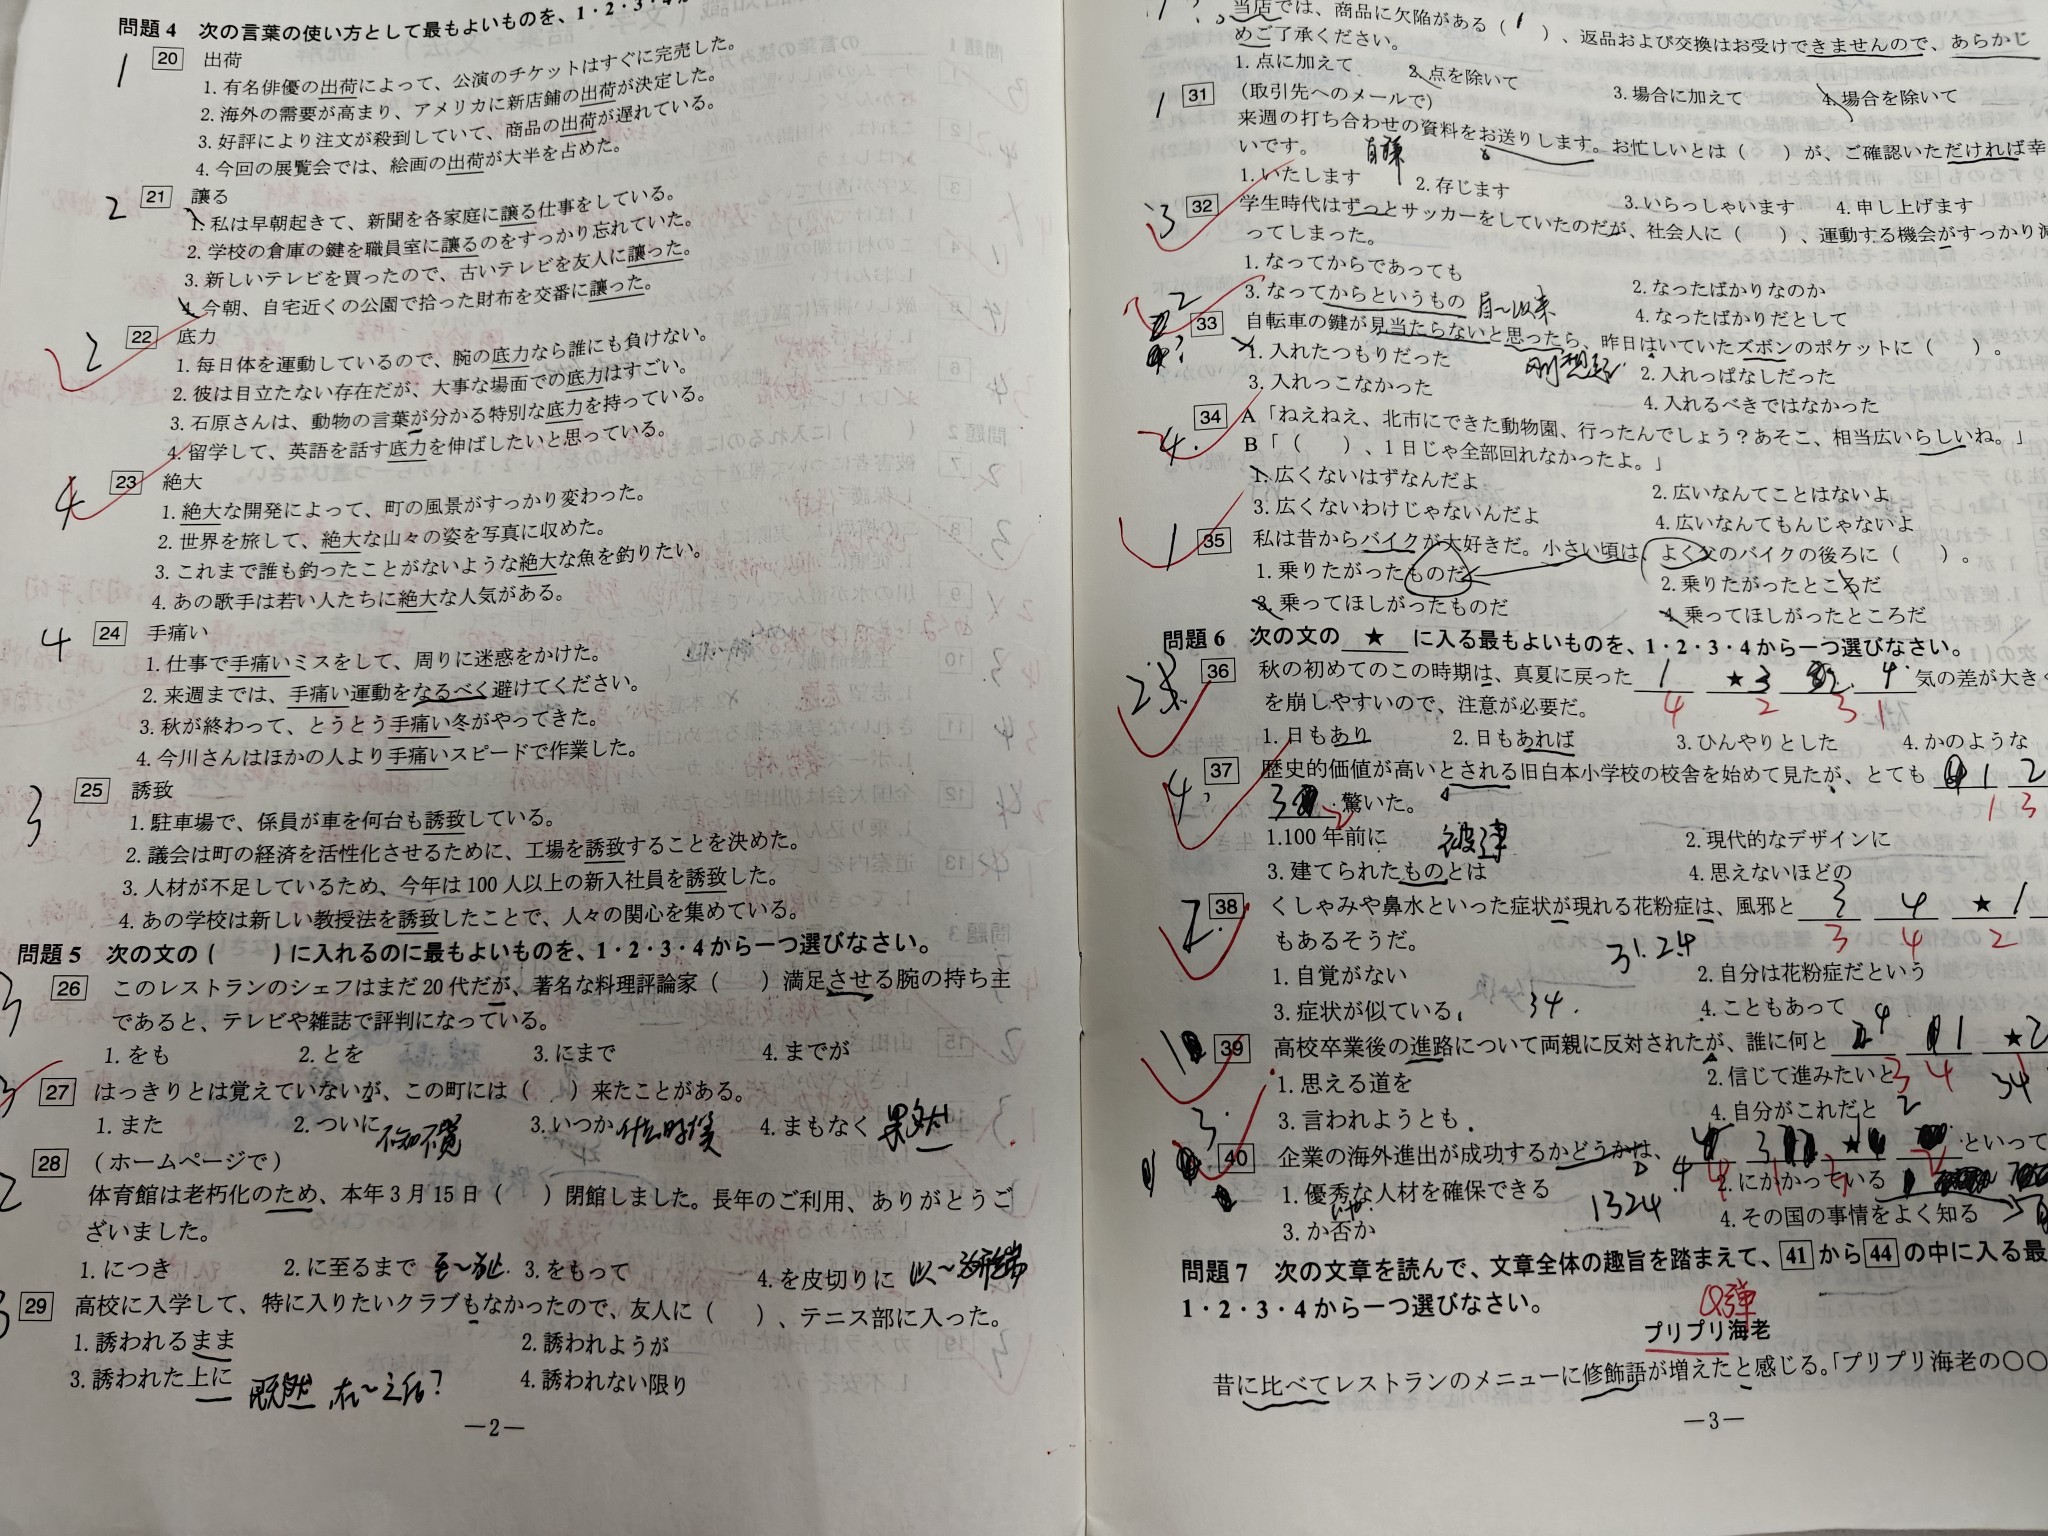 問題4 次の言葉の使い方として最もよいものを、1・2・3・4か
1 20 出荷
1. 有名俳優の出荷によって、公演のチケットはすぐに完売した。
2. 海外の需要が高まり、アメリカに新店舗の出荷が決定した。
3. 好評により注文が殺到していて、商品の出荷が遅れている。
4. 今回の展覧会では、絵画の出荷が大半を占めた。
2 21 譲る
1. 私は早朝起きて、新聞を各家庭に譲る仕事をしている。
2. 学校の倉庫の鍵を職員室に譲るのをすっかり忘れていた。
3. 新しいテレビを買ったので、古いテレビを友人に譲った。
4. 今朝、自宅近くの公園で拾った財布を交番に譲った。
2 22 底力
1. 毎日体を運動しているので、腕の底力なら誰にも負けない。
2. 彼は目立たない存在だが、大事な場面での底力はすごい。
3. 石原さんは、動物の言葉が分かる特別な底力を持っている。
4. 留学して、英語を話す底力を伸ばしたいと思っている。
4 23 絶大
1. 絶大な開発によって、町の風景がすっかり変わった。
2. 世界を旅して、絶大な山々の姿を写真に収めた。
3. これまで誰も釣ったことがないような絶大な魚を釣りたい。
4. あの歌手は若い人たちに絶大な人気がある。
4 24 手痛い
1. 仕事で手痛いミスをして、周りに迷惑をかけた。
2. 来週までは、手痛い運動をなるべく避けてください。
3. 秋が終わって、とうとう手痛い冬がやってきた。
4. 今川さんはほかの人より手痛いスピードで作業した。
3 25 誘致
1. 駐車場で、係員が車を何台も誘致している。
2. 議会は町の経済を活性化させるために、工場を誘致することを決めた。
3. 人材が不足しているため、今年は100人以上の新入社員を誘致した。
4. あの学校は新しい教授法を誘致したことで、人々の関心を集めている。
問題5 次の文の( )に入れるのに最もよいものを、1・2・3・4から一つ選びなさい。
3 26 このレストランのシェフはまだ20代だが、著名な料理評論家( )満足させる腕の持ち主
であると、テレビや雑誌で評判になっている。
1. をも 2. とを 3. にまで 4. までが
3 27 はっきりとは覚えていないが、この町には( )来たことがある。
1. また 2. ついに 不知不覚 3. いつか 什么时候 4. まもなく 果然
2 28 (ホームページで)
体育館は老朽化のため、本年3月15日( )閉館しました。長年のご利用、ありがとうご
ざいました。
1. につき 2. に至るまで 至～为止 3. をもって 4. を皮切りに 以～为开端
3 29 高校に入学して、特に入りたいクラブもなかったので、友人に( )、テニス部に入った。
1. 誘われるまま 2. 誘われようが
3. 誘われた上に 既然 在～之后? 4. 誘われない限り
―2―
当店では、商品に欠陥がある( 1 )、返品および交換はお受けできませんので、あらかじ
めご了承ください。
1. 点に加えて 2. 点を除いて 3. 場合に加えて 4. 場合を除いて
1 31 (取引先へのメールで)
来週の打ち合わせの資料をお送りします。お忙しいとは( )が、ご確認いただければ幸
いです。 自謙
1. いたします 2. 存じます 3. いらっしゃいます 4. 申し上げます
3 32 学生時代はずっとサッカーをしていたのだが、社会人に( )、運動する機会がすっかり減
ってしまった。
1. なってからであっても 2. なったばかりなのか
3. なってからというもの 自～以来 4. なったばかりだとして
2 33 自転車の鍵が見当たらないと思ったら、昨日はいていたズボンのポケットに( )。
1. 入れたつもりだった 刚想起 2. 入れっぱなしだった
3. 入れっこなかった 4. 入れるべきではなかった
4. 34 A「ねえねえ、北市にできた動物園、行ったんでしょう?あそこ、相当広いらしいね。」
B「( )、1日じゃ全部回れなかったよ。」
1. 広くないはずなんだよ 2. 広いなんてことはないよ
3. 広くないわけじゃないんだよ 4. 広いなんてもんじゃないよ
1 35 私は昔からバイクが大好きだ。小さい頃は、よく父のバイクの後ろに( )。
1. 乗りたがったものだ 2. 乗りたがったところだ
3. 乗ってほしがったものだ 4. 乗ってほしがったところだ
問題6 次の文の ★ に入る最もよいものを、1・2・3・4から一つ選びなさい。
2 36 秋の初めてのこの時期は、真夏に戻った 1 ★3 2 4 気の差が大きく
4 2 3 1
を崩しやすいので、注意が必要だ。
1. 日もあり 2. 日もあれば 3. ひんやりとした 4. かのような
4 37 歴史的価値が高いとされる旧白本小学校の校舎を始めて見たが、とても 1 2
1 3
3 2 驚いた。
1.100年前に 被建 2. 現代的なデザインに
3. 建てられたものとは 4. 思えないほどの
2. 38 くしゃみや鼻水といった症状が現れる花粉症は、風邪と 3 4 ★1
3 4 2
もあるそうだ。 31.24
1. 自覚がない 2. 自分は花粉症だという
3. 症状が似ている 34. 4. こともあって
1 39 高校卒業後の進路について両親に反対されたが、誰に何と 4 1 ★2
1. 思える道を 2. 信じて進みたいと 3 4 34
3. 言われようとも 4. 自分がこれだと 2
3. 40 企業の海外進出が成功するかどうかは、 4 3 ★ といって
1. 優秀な人材を確保できる 2. にかかっている
3. か否か 1324 4. その国の事情をよく知る
問題7 次の文章を読んで、文章全体の趣旨を踏まえて、41から44の中に入る最
1・2・3・4から一つ選びなさい。
Q弾
プリプリ海老
昔に比べてレストランのメニューに修飾語が増えたと感じる。「プリプリ海老の〇〇
―3―